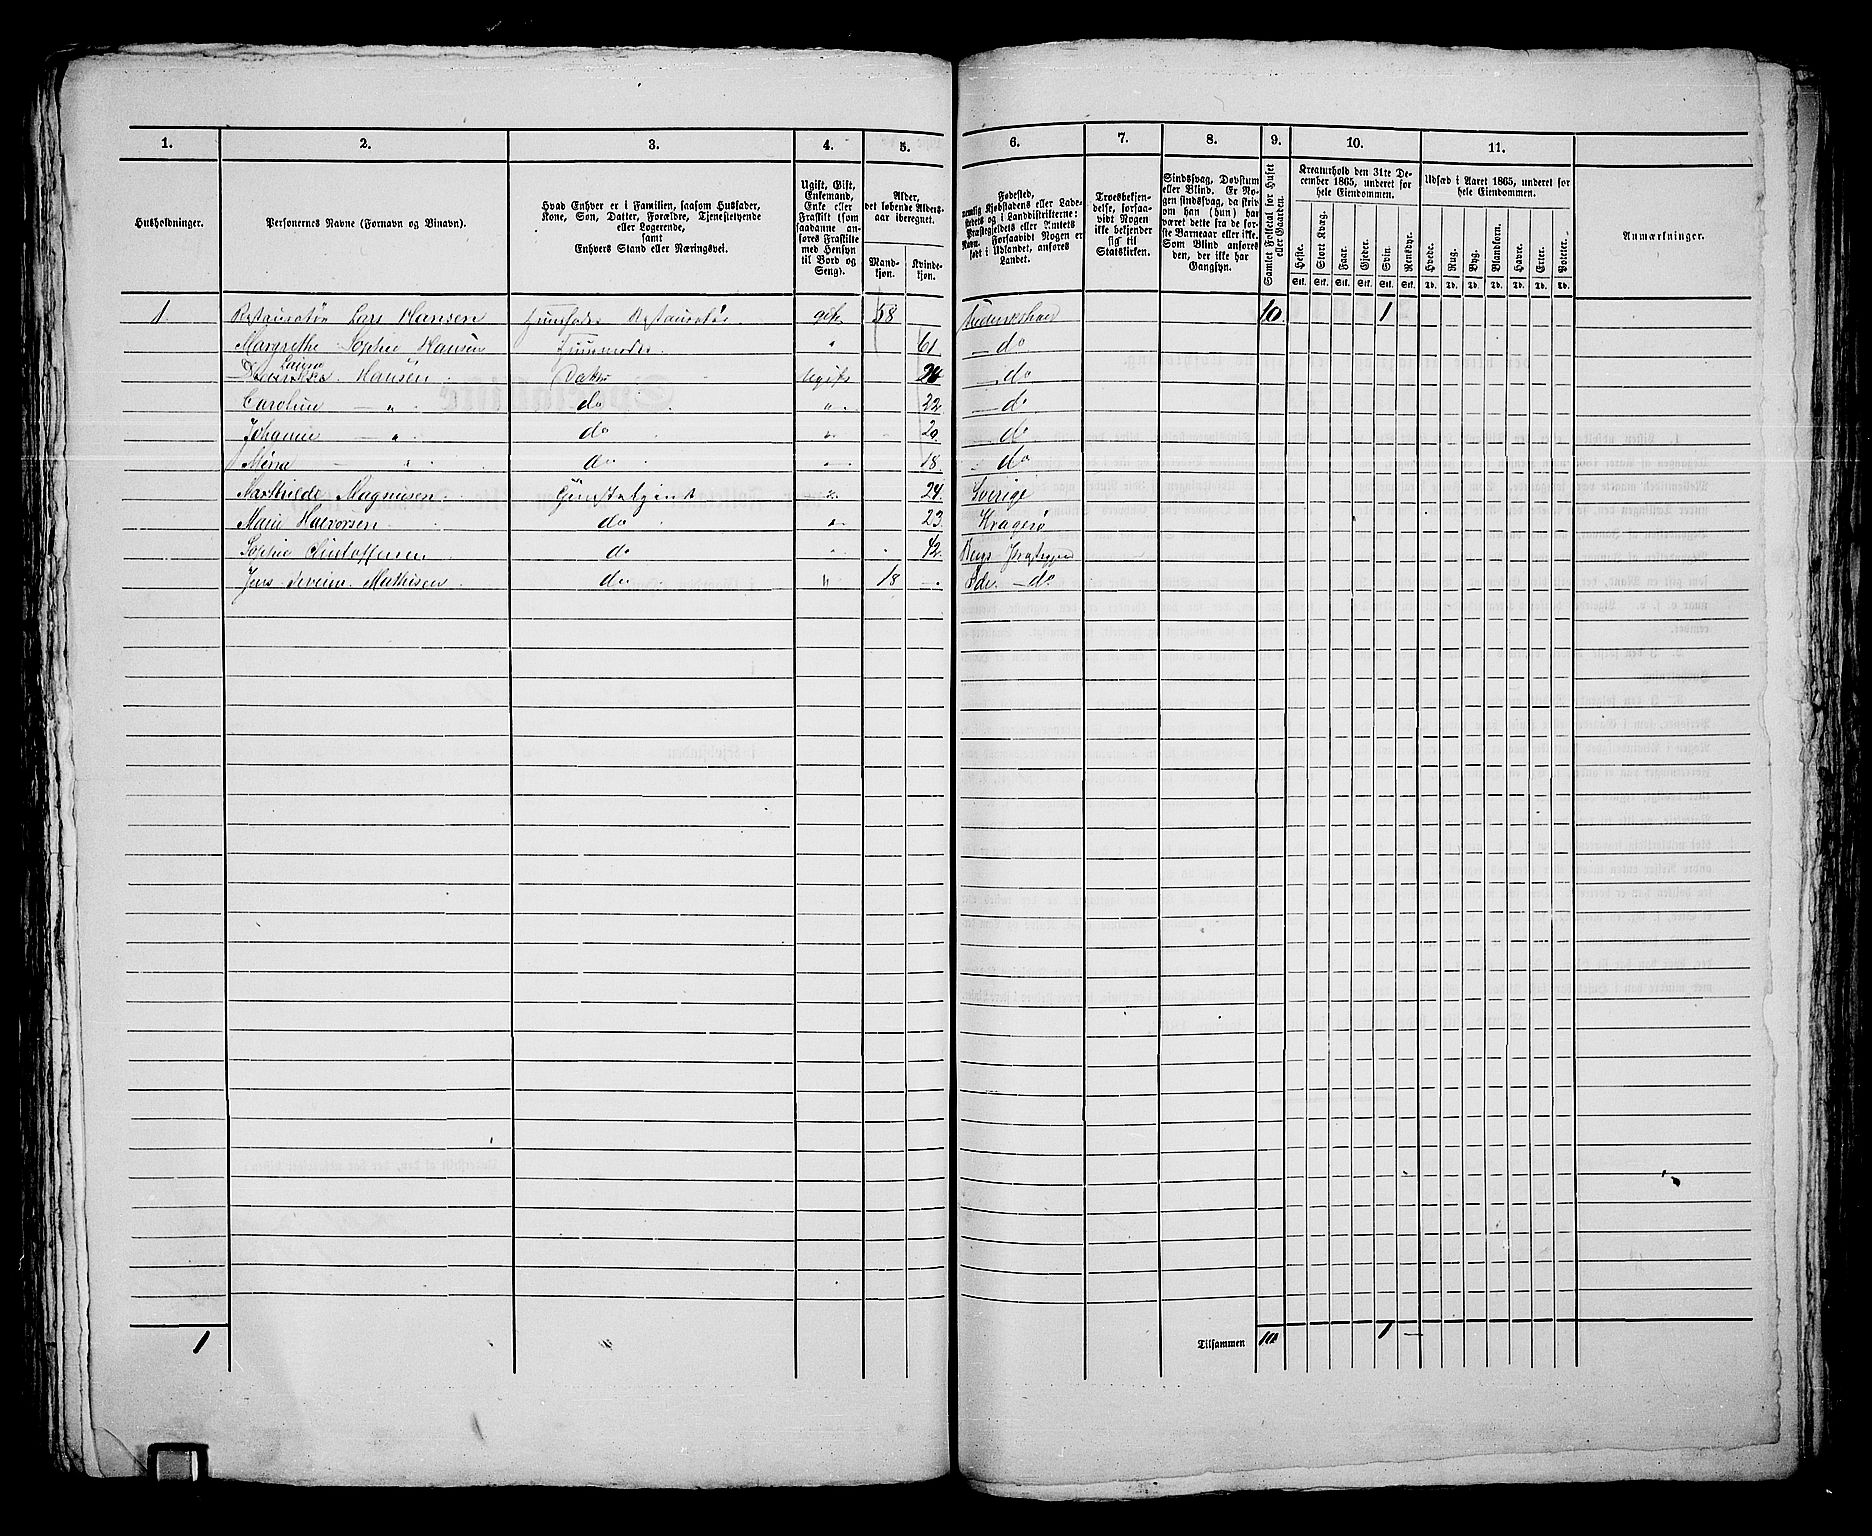 1. 2. 3. 4. 5. 6. 7. 8. 9. 10. 11.
Husholdninger.
Personernes Navne (Fornavn og Binavn).
Hvad Enhver er i Familien, saasom Husfader,
Kone, Søn, Datter, Forældre, Tjenestetyende
eller Logerende,
samt
Enhvers Stand eller Næringsvei.
Ugift, Gift,
Enkemand,
Enke eller
Fraskilt (som
saadanne an-
føres Fraskilte
med Hensyn
til Bord og
Seng).
Alder,
det løbende Alders-
aar iberegnet.
Mand-
kjøn.
Kvinde-
kjøn.
Fødested,
nemlig Kjøbstadens eller Lade-
stedets og i Landdistrikterne:
Præstegjeldets eller Amtets
Navn. Forsaavidt Nogen er
født i Udlandet, anføres
Landet.
Troesbekjen-
delse, forsaa-
vidt Nogen
ikke bekjender
sig til
Statskirken.
Sindssvag, Døvstum
eller Blind. Er No-
gen sindssvag, da skriv
om han (hun) har
været dette fra de før-
ste Barneaar eller ikke.
Som Blind anføres
den, der ikke har
Gangsyn.
Samlet Folketal for Huset
eller Gaarden.
Kreaturhold den 31te De-
cember 1865, underet for
hele Eiendommen.
Heste. Stort Kvæg. Faar. Gjeder. Svin. Rensdyr.
Stk. Stk. Stk. Stk. Stk. Stk.
Udsæd i Aaret 1865, underet for
hele Eiendommen.
Hvede. Rug. Byg. Blandkorn. Havre. Erter. Poteter.
Td. Td. Td. Td. Td. Td. Td.
Anmærkninger.
1. Restauratør Lars Hansen Restauratør gift 58 10 1
Margrethe Sophie Hansen " 61 — do
Laura Hansen Ugift — do
Caroline — " do " 22 — do
Johanne — " do " 20 — do
Mina — " do " 18 — do
Magnusen " 24 Sverige
Marie Halvorsen do " 23 Kragerø
Sophie do " 42
Jens Mathisen do " 18 — do
1 Tilsammen 10 1